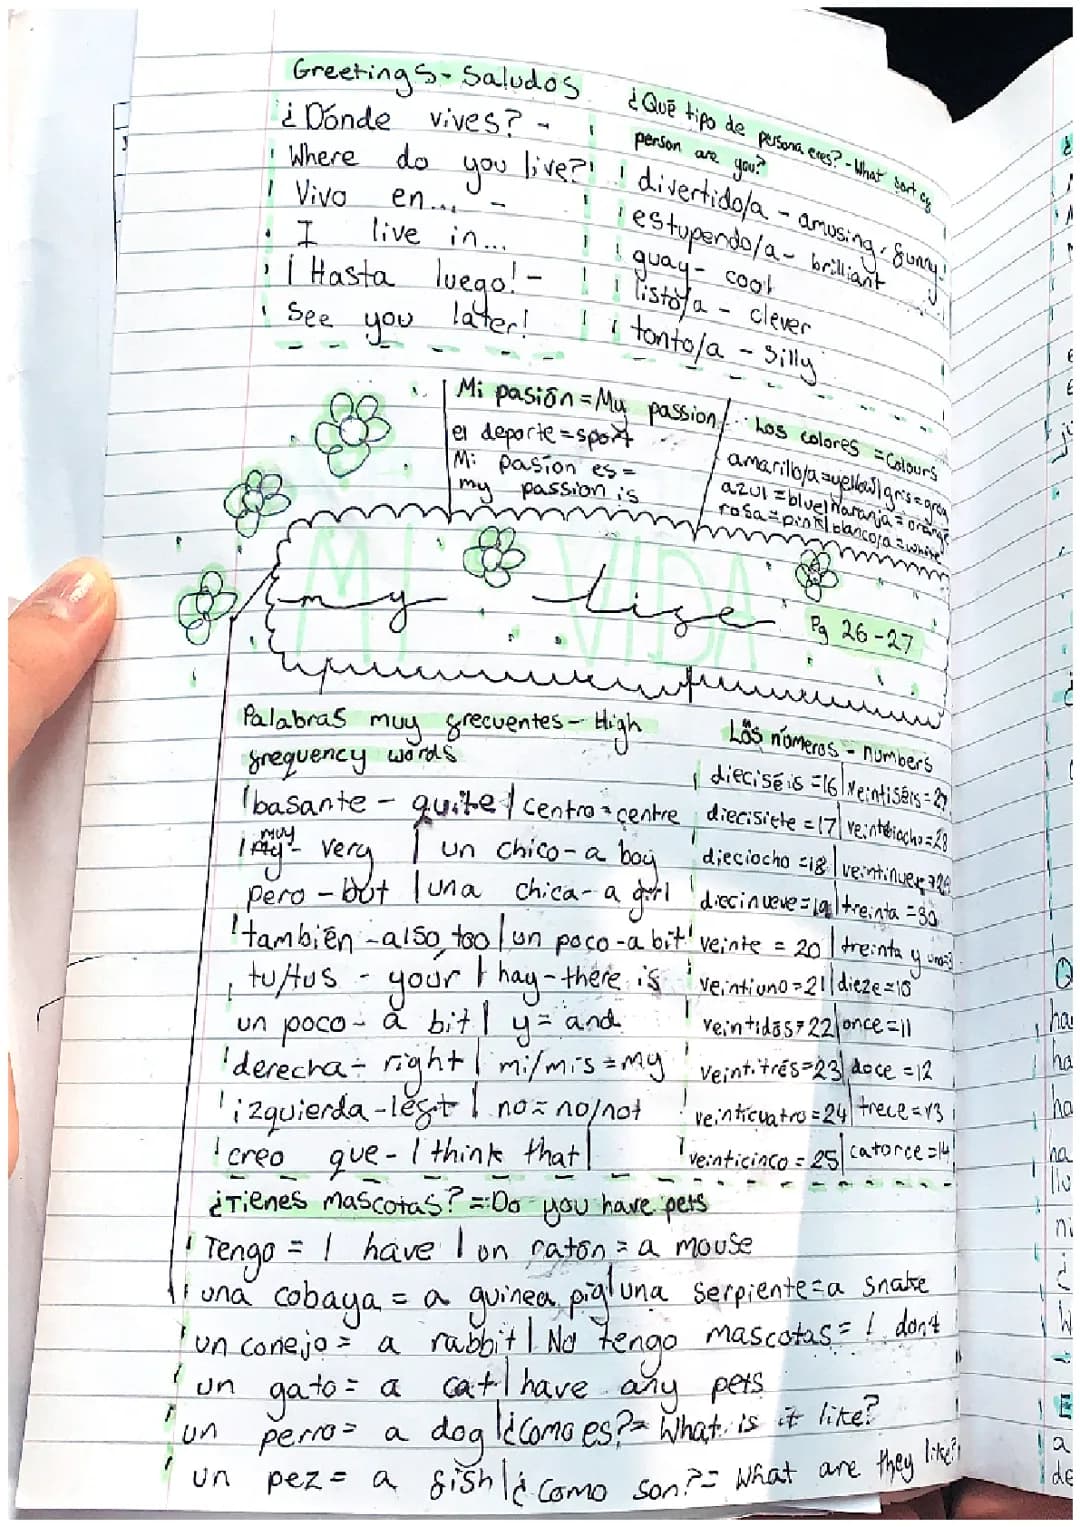 Greetings - Saludos
¿Dónde vives? -
Where do you live?
Vivo en... -
I live in...
¡Hasta luego! -
See you later!
¿Qué tipo de persona eres? - What sort of
person are you?
divertido/a - amusing, funny
estupendo/a - brilliant
guay - cool
listo/a - clever
tonto/a - silly
Mi pasión = My passion
el deporte = sport
Mi pasión es =
my passion is
Los colores = colours
amarillo/a = yellow | gris = grey
azul = blue | naranja = orange
rosa = pink | blanco/a = white
MI VIDA
my life
Pg 26-27
Palabras muy frecuentes - High
frequency words
basante - quite | centro = centre
muy - very | un chico - a boy
pero - but | una chica - a girl
también - also, too | un poco - a bit
tu/tus - your | hay - there is
un poco - a bit | y = and
derecha - right | mi/mis = my
izquierda - left | no = no/not
creo que - I think that |
Los números - numbers
dieciséis = 16 | veintiséis =
diecisiete = 17 | = 28
dieciocho = 18 | veintinueve = 29
diecinueve = 19 | treinta = 30
veinte = 20 | treinta y uno =
veintiuno = 21 | dieze = 10
veintidós = 22 | once = 11
veintitrés = 23 | doce = 12
veinticuatro = 24 | trece = 13
veinticinco = 25 | catorce = 14
¿Tienes mascotas? = Do you have pets
Tengo = I have | un ratón = a mouse
una cobaya = a guinea pig | una serpiente = a snake
un conejo = a rabbit | No tengo mascotas = I don't
un gato = a cat | have any pets
un perro = a dog | ¿Como es? = What is it like?
un pez = a fish | ¿Como son? = What are they like?